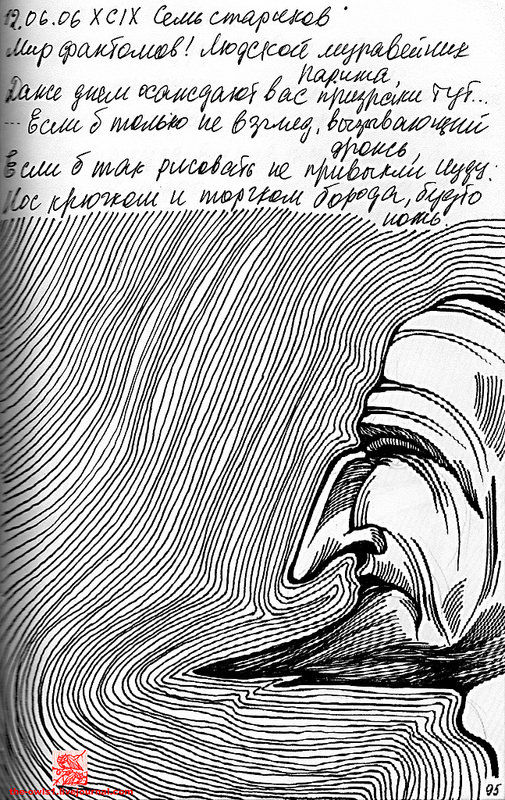 12.06.06 XCIX Семь стариков
Мир фантомов! Людской муравейник
Парижа,
Даже днем осаждают вас призраки тут...
... Если б только не взгляд, вызывающий
дрожь,
Если б так рисовать не привыкли Иуду:
Нос крючком и торчком борода, будто
нож.
95